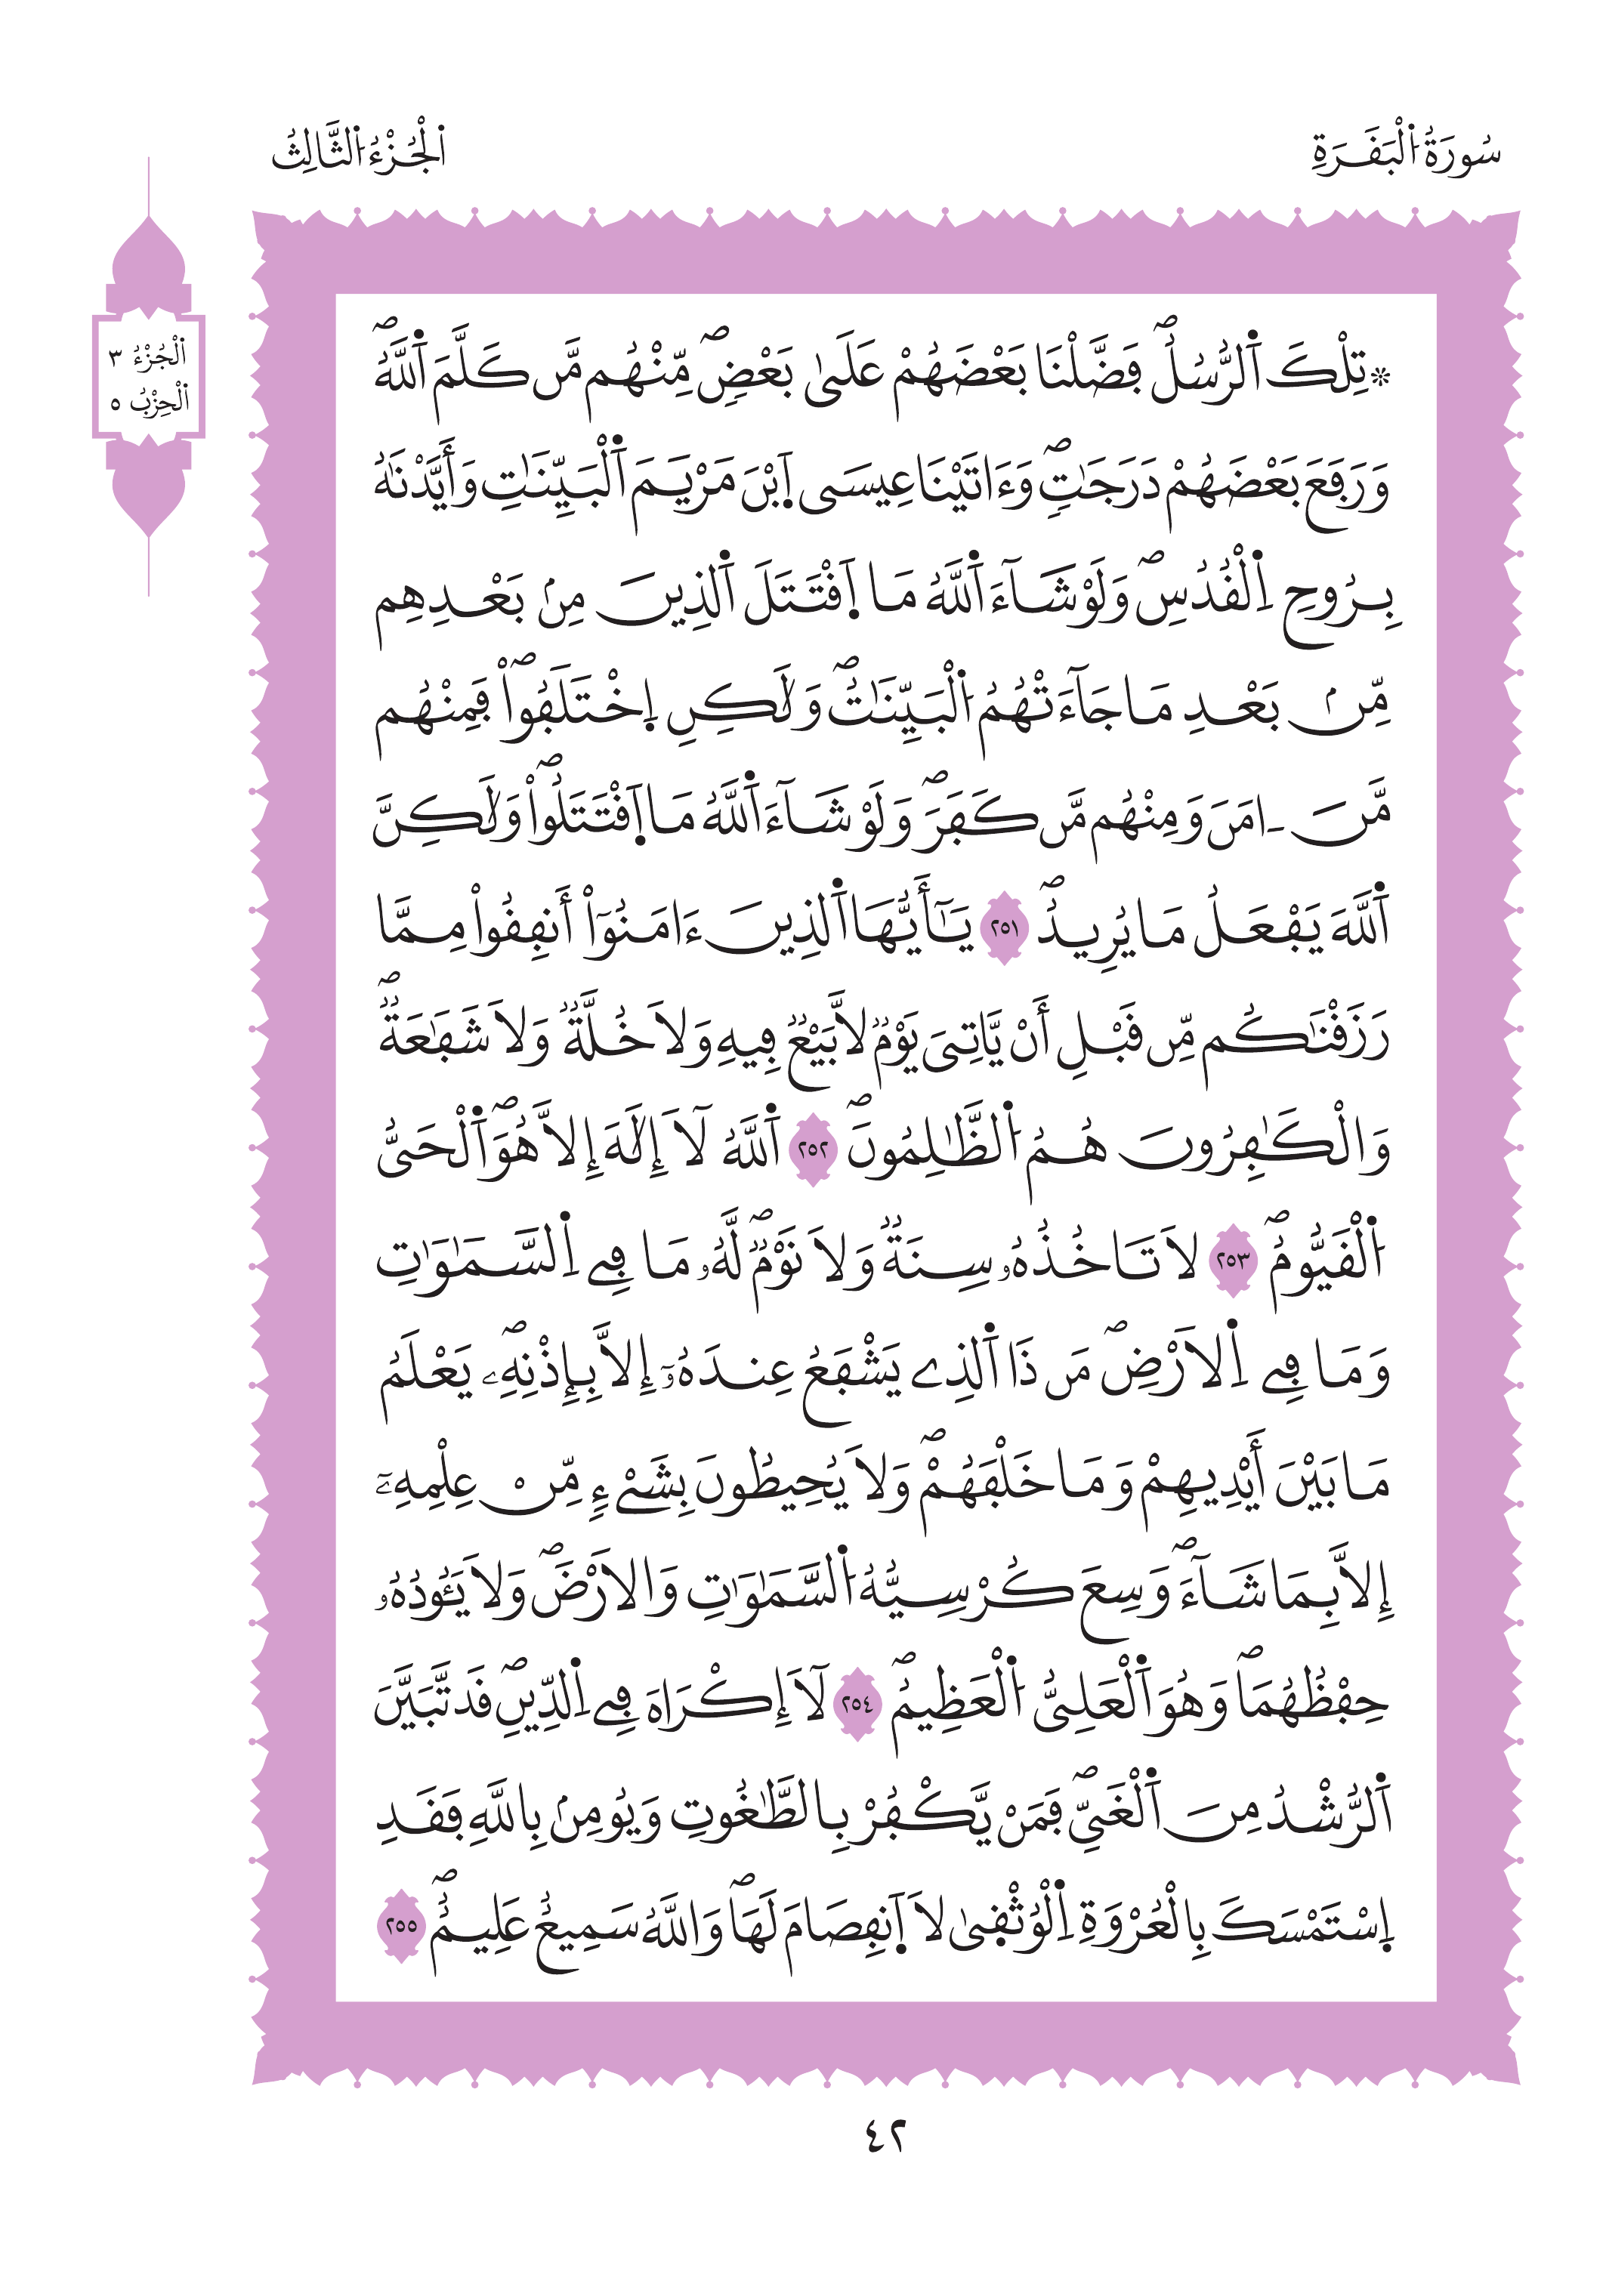 سُورَةُ اُ۬لْبَقَرَةِ
اَ۬لْجُزْءُ اُ۬لثَّالِثُ
اَ۬لْجُزْءُ ٣
اَ۬لْحِزْبُ ٥
۞تِلْكَ اَ۬لرُّسُلُۖ فَضَّلْنَا بَعْضَهُمْ عَلَىٰ بَعْضٖۖ مِّنْهُم مَّن كَلَّمَ اَ۬للَّهُۖ
وَرَفَعَ بَعْضَهُمْ دَرَجَٰتٖۖ وَءَاتَيْنَا عِيسَى اَ۪بْنَ مَرْيَمَ اَ۬لْبَيِّنَٰتِ وَأَيَّدْنَٰهُ
بِرُوحِ اِ۬لْقُدُسِۖ وَلَوْ شَآءَ اَ۬للَّهُ مَا اَ۪قْتَتَلَ اَ۬لذِينَ مِنۢ بَعْدِهِم
مِّنۢ بَعْدِ مَا جَآءَتْهُمُ اُ۬لْبَيِّنَٰتُۖ وَلَٰكِنِ اِ۪خْتَلَفُواْۖ فَمِنْهُم
مَّنَ ـ امَنَ وَمِنْهُم مَّن كَفَرَۖ وَلَوْ شَآءَ اَ۬للَّهُ مَا اَ۪قْتَتَلُواْۖ وَلَٰكِنَّ
اَ۬للَّهَ يَفْعَلُ مَا يُرِيدُۖ ٢٥١ يَٰٓأَيُّهَا اَ۬لذِينَ ءَامَنُوٓاْ أَنفِقُواْ مِمَّا
رَزَقْنَٰكُم مِّن قَبْلِ أَنْ يَّاتِىَ يَوْمٞ لاَّ بَيْعٞ فِيهِ وَلاَ خُلَّةٞ وَلاَ شَفَٰعَةٞۖ
وَالْكَٰفِرُونَ هُمُ اُ۬لظَّٰلِمُونَۖ ٢٥٢ اَ۬للَّهُ لَآ إِلَٰهَ إِلاَّ هُوَۖ اَ۬لْحَىُّ
اُ۬لْقَيُّومُۖ ٢٥٣ لاَ تَاخُذُهُۥ سِنَةٞ وَلاَ نَوْمٞۖ لَّهُۥ مَا فِے اِ۬لسَّمَٰوَٰتِ
وَمَا فِے اِ۬لاَرْضِۖ مَن ذَا اَ۬لذِے يَشْفَعُ عِندَهُۥٓ إِلاَّ بِإِذْنِهِۦۖ يَعْلَمُ
مَا بَيْنَ أَيْدِيهِمْ وَمَا خَلْفَهُمْۖ وَلاَ يُحِيطُونَ بِشَےْءٖ مِّنْ عِلْمِهِۦٓ
إِلاَّ بِمَا شَآءَۖ وَسِعَ كُرْسِيُّهُ اُ۬لسَّمَٰوَٰتِ وَالاَرْضَۖ وَلاَ يَـُٔودُهُۥ
حِفْظُهُمَاۖ وَهُوَ اَ۬لْعَلِىُّ اُ۬لْعَظِيمُۖ ٢٥٤ لَآ إِكْرَاهَ فِے اِ۬لدِّينِۖ قَد تَّبَيَّنَ
اَ۬لرُّشْدُ مِنَ اَ۬لْغَىِّۖ فَمَنْ يَّكْفُرْ بِالطَّٰغُوتِ وَيُومِنۢ بِاللَّهِ فَقَدِ
اِ۪سْتَمْسَكَ بِالْعُرْوَةِ اِ۬لْوُثْقىٰ لاَ اَ۪نفِصَامَ لَهَاۖ وَاللَّهُ سَمِيعٌ عَلِيمٌۖ ٢٥٥
٤٢